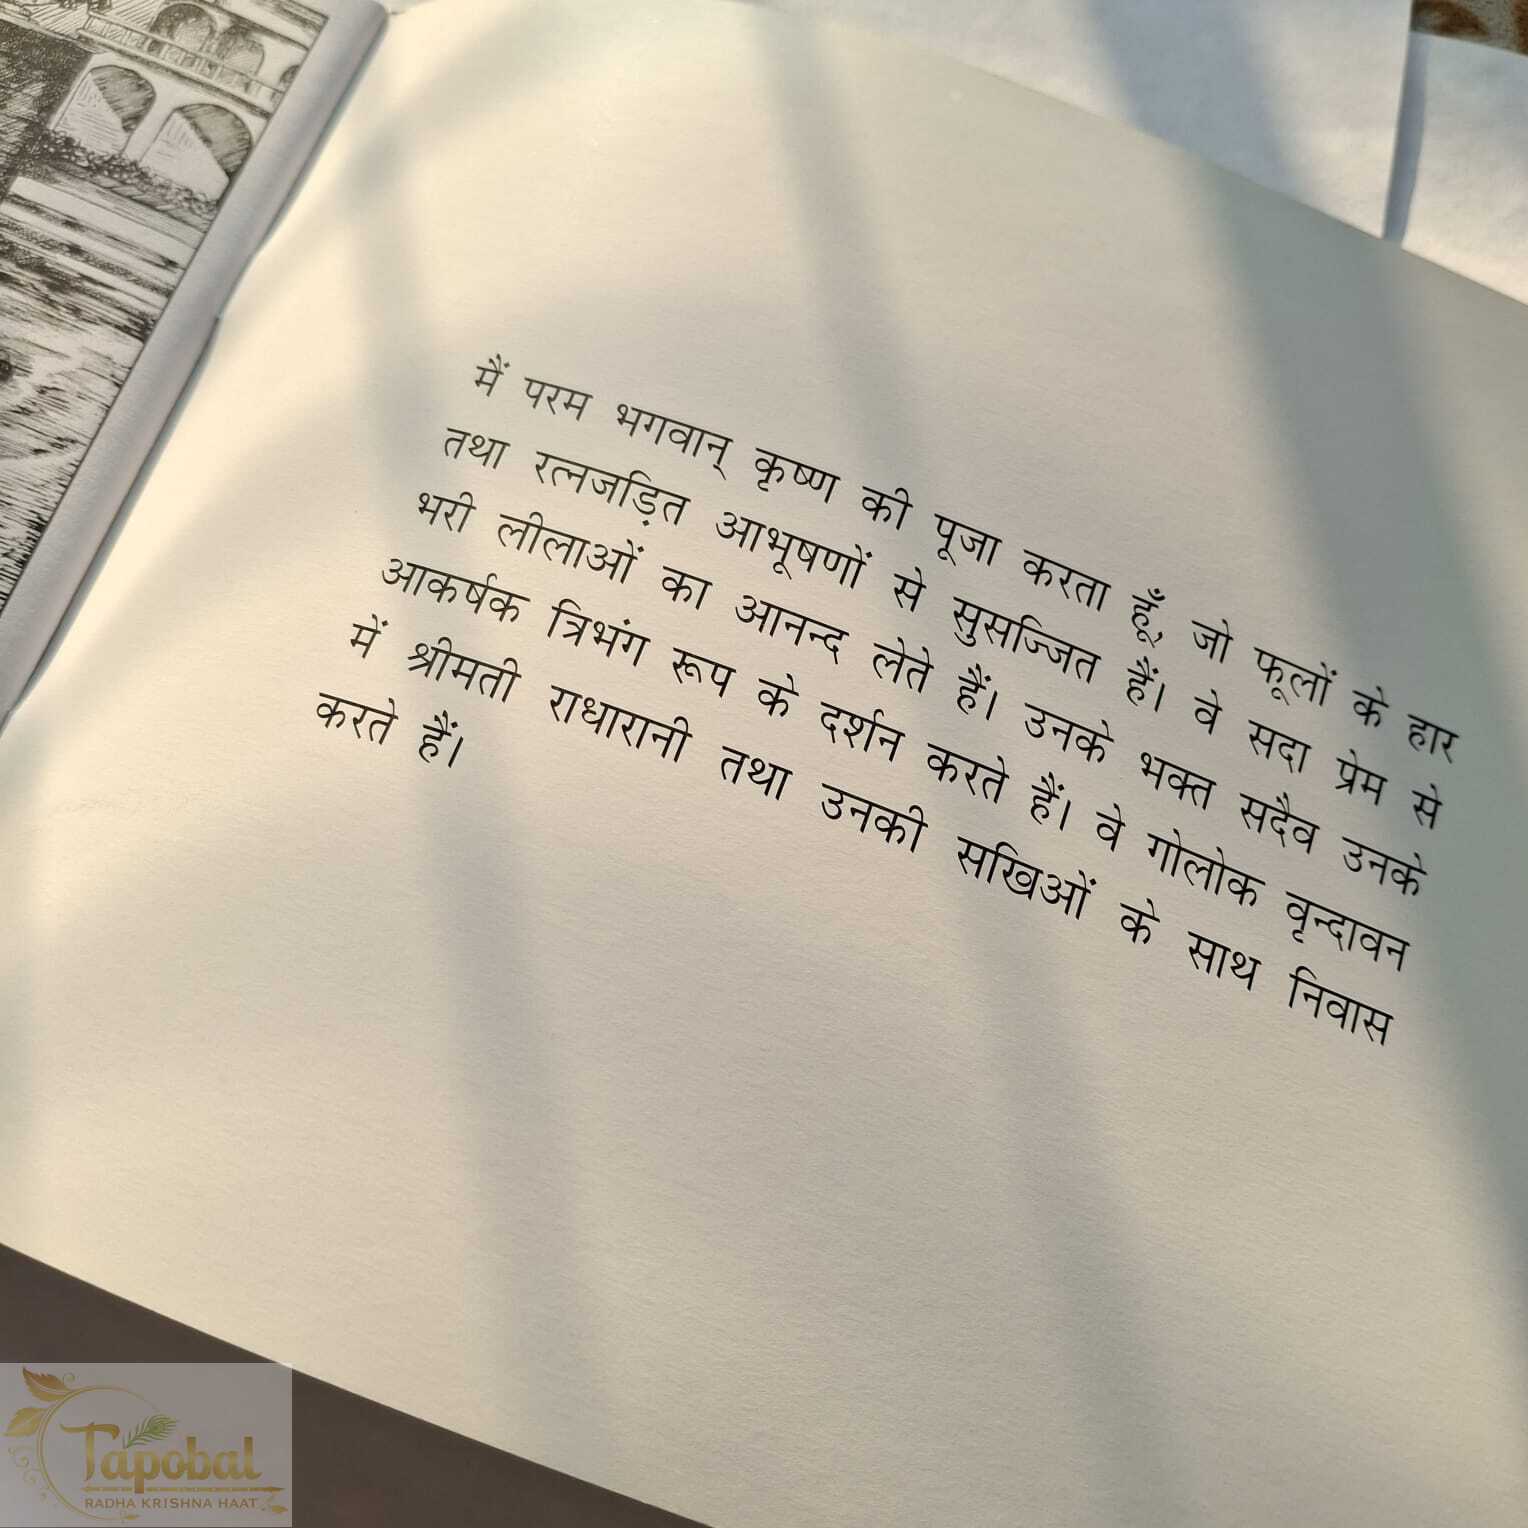 मैं परम भगवान् कृष्ण की पूजा करता हूँ, जो फूलों के हार
तथा रत्नजड़ित आभूषणों से सुसज्जित हैं। वे सदा प्रेम से
भरी लीलाओं का आनन्द लेते हैं। उनके भक्त सदैव उनके
आकर्षक त्रिभंग रूप के दर्शन करते हैं। वे गोलोक वृन्दावन
में श्रीमती राधारानी तथा उनकी सखिओं के साथ निवास
करते हैं।
Tapobal
RADHA KRISHNA HAAT